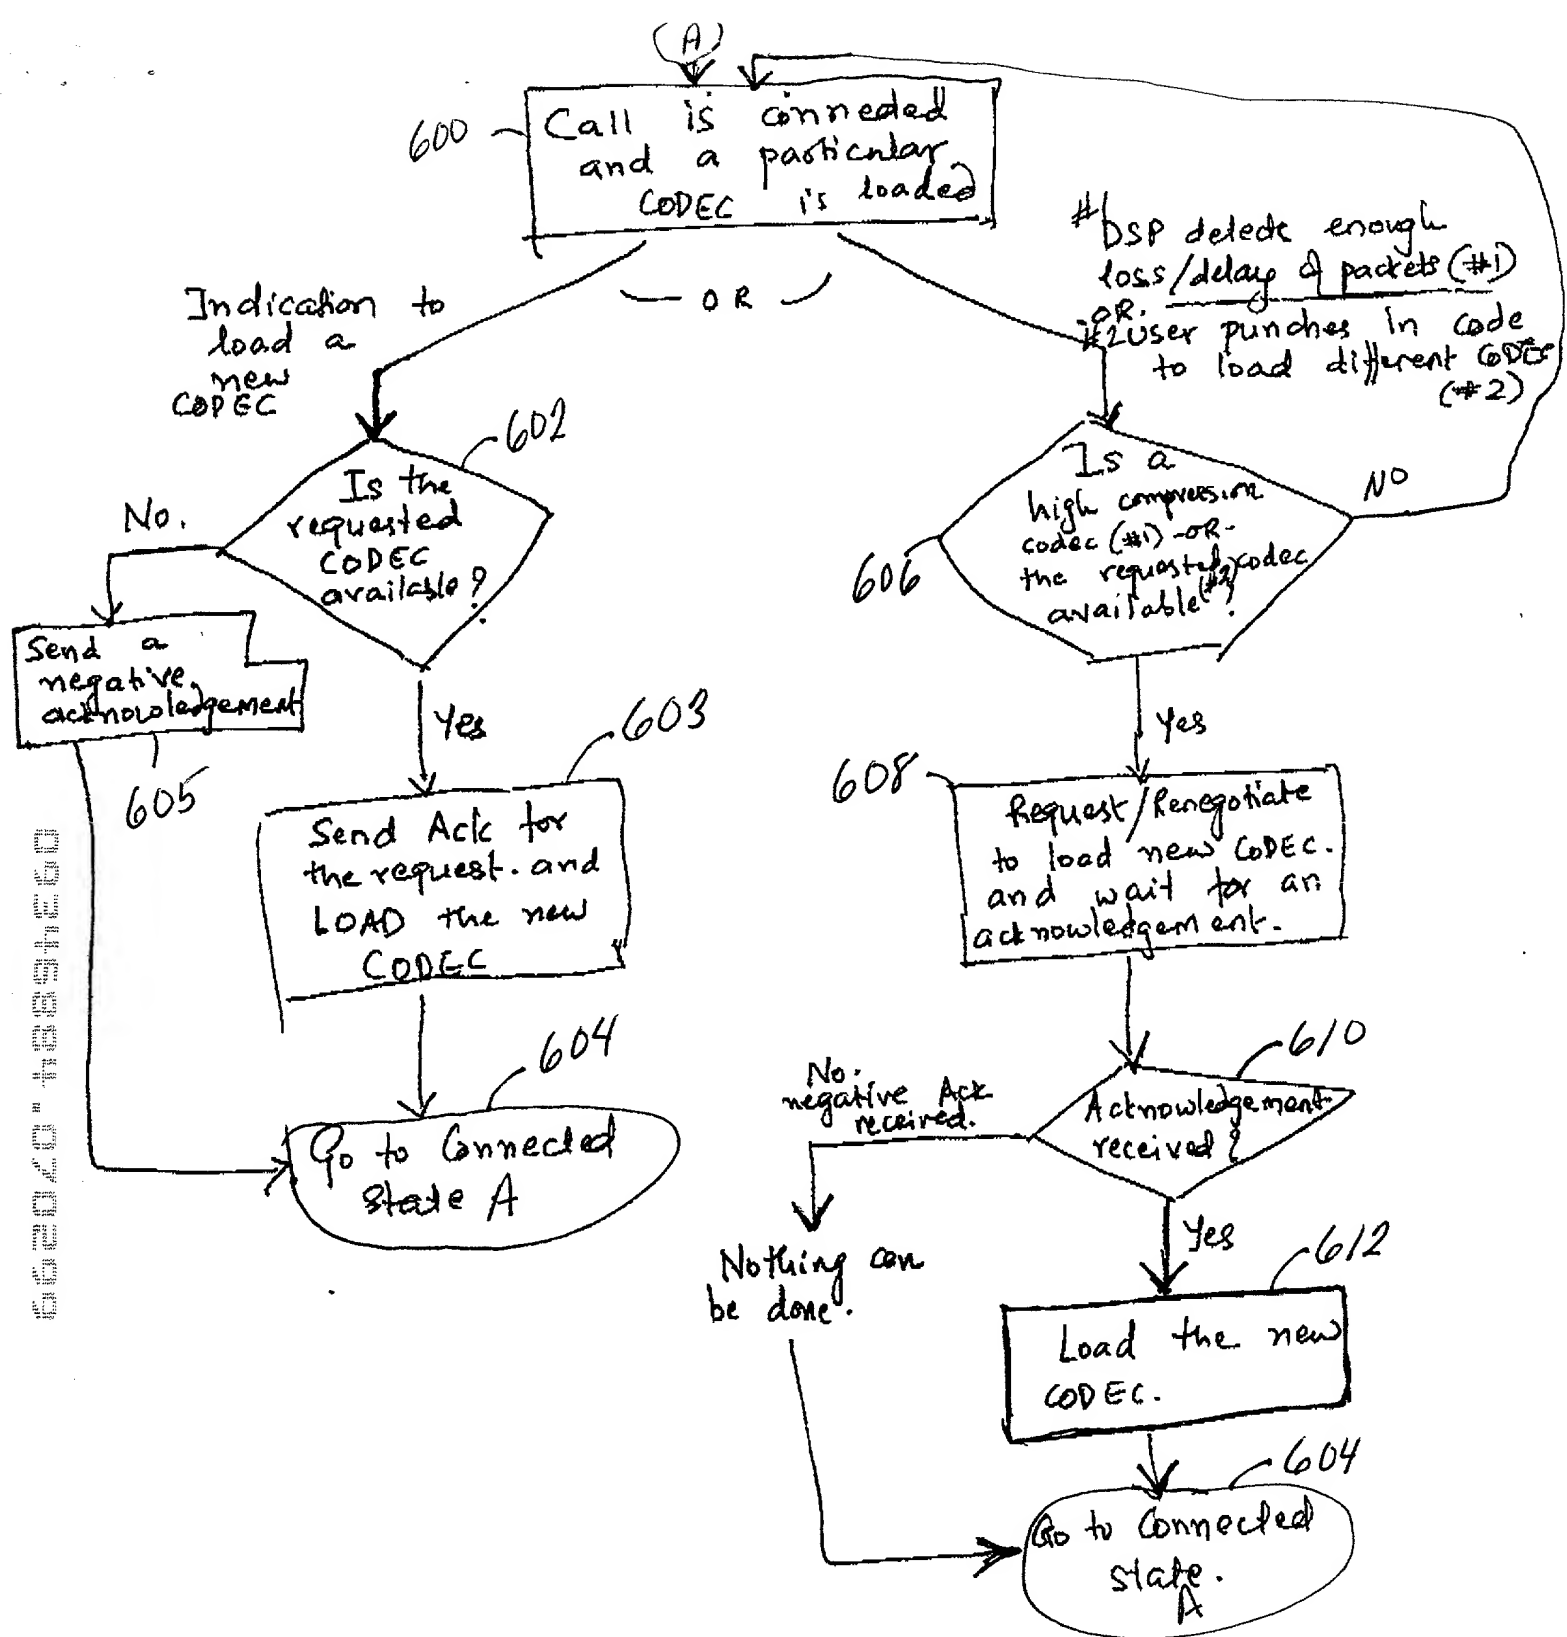 (A)
600
Call is connected
and a particular
CODEC is loaded
#1 DSP detects enough
loss/delay of packets (#1)
-OR-
#2 user punches in code
to load different CODEC
(#2)
Indication to
load a
new
CODEC
- OR -
602
Is the
requested
CODEC
available?
No.
Yes
Send a
negative
acknowledgement
605
603
Send Ack for
the request. and
LOAD the new
CODEC
604
Go to Connected
state A
606
Is a
high compression
codec (#1) -OR-
the requested codec
(#2)
available?
NO
Yes
608
Request/Renegotiate
to load new CODEC.
and wait for an
acknowledgement.
610
Acknowledgement
received?
No.
negative Ack
received.
Nothing can
be done.
Yes
612
Load the new
CODEC.
604
Go to Connected
state.
A